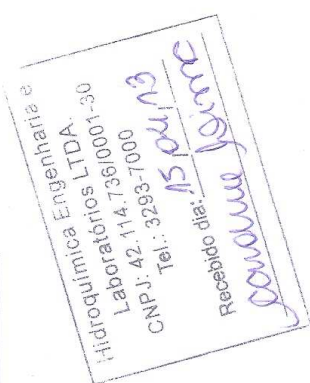 Hidroquímica Engenharia e
Laboratórios LTDA.
CNPJ: 42.114.736/0001-30
Tel.: 3293-7000
Recebido dia: 15 04 13